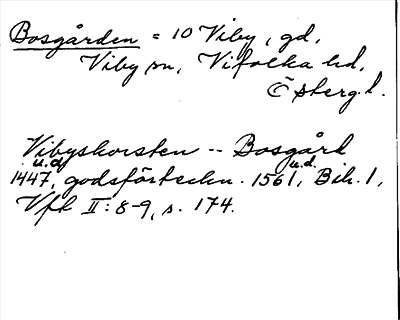 Bosgården = 10 Viby, gd,
Viby sn, Vifolka hd,
Östergl.
Vibyskorsten -- Bosgård
u.d. u.d.
1447, godsförteckn. 1561, Bih. 1,
Vfk II: 8-9, s. 174.